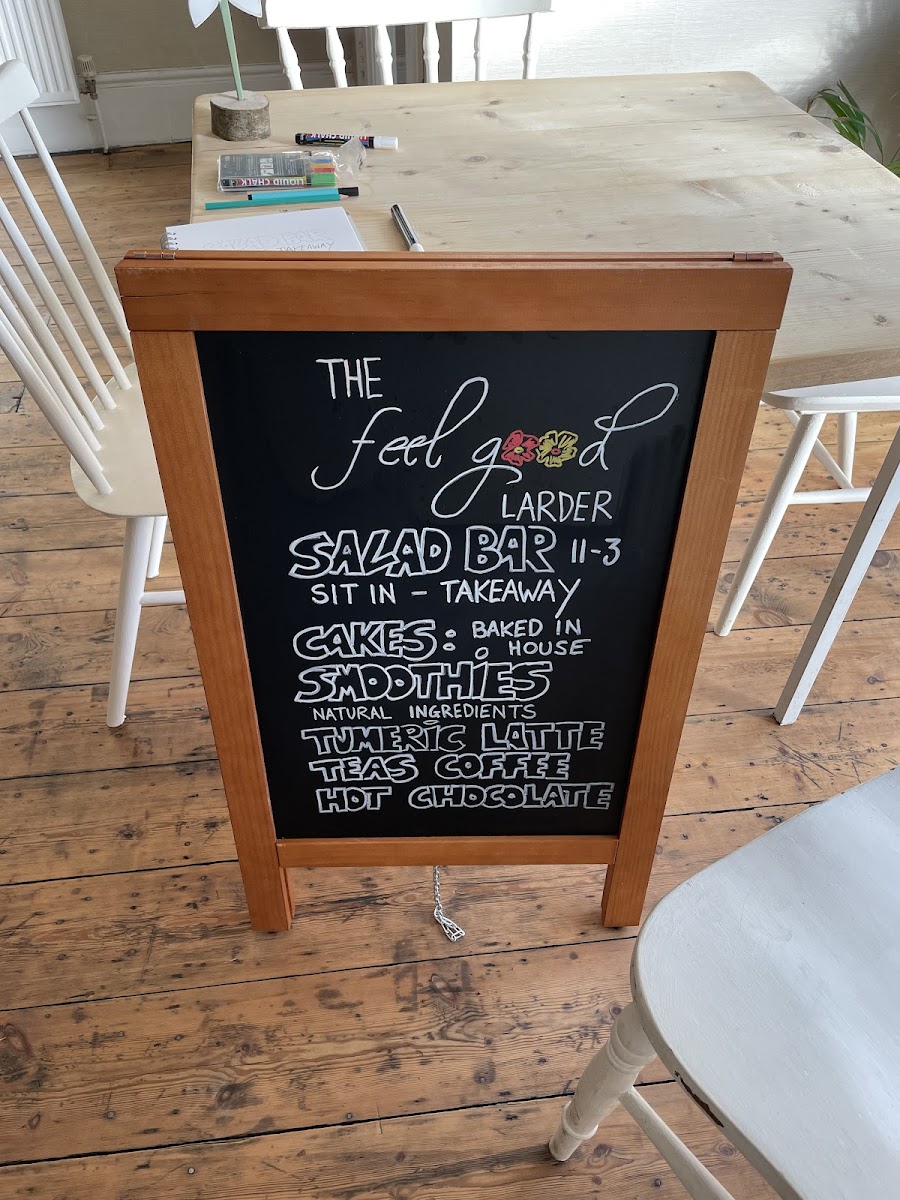 LIQUID CHALK
LIQUID CHALK
THE
feel good
LARDER
SALAD BAR 11-3
SIT IN - TAKEAWAY
CAKES: BAKED IN
HOUSE
SMOOTHIES
NATURAL INGREDIENTS
TUMERIC LATTE
TEAS COFFEE
HOT CHOCOLATE